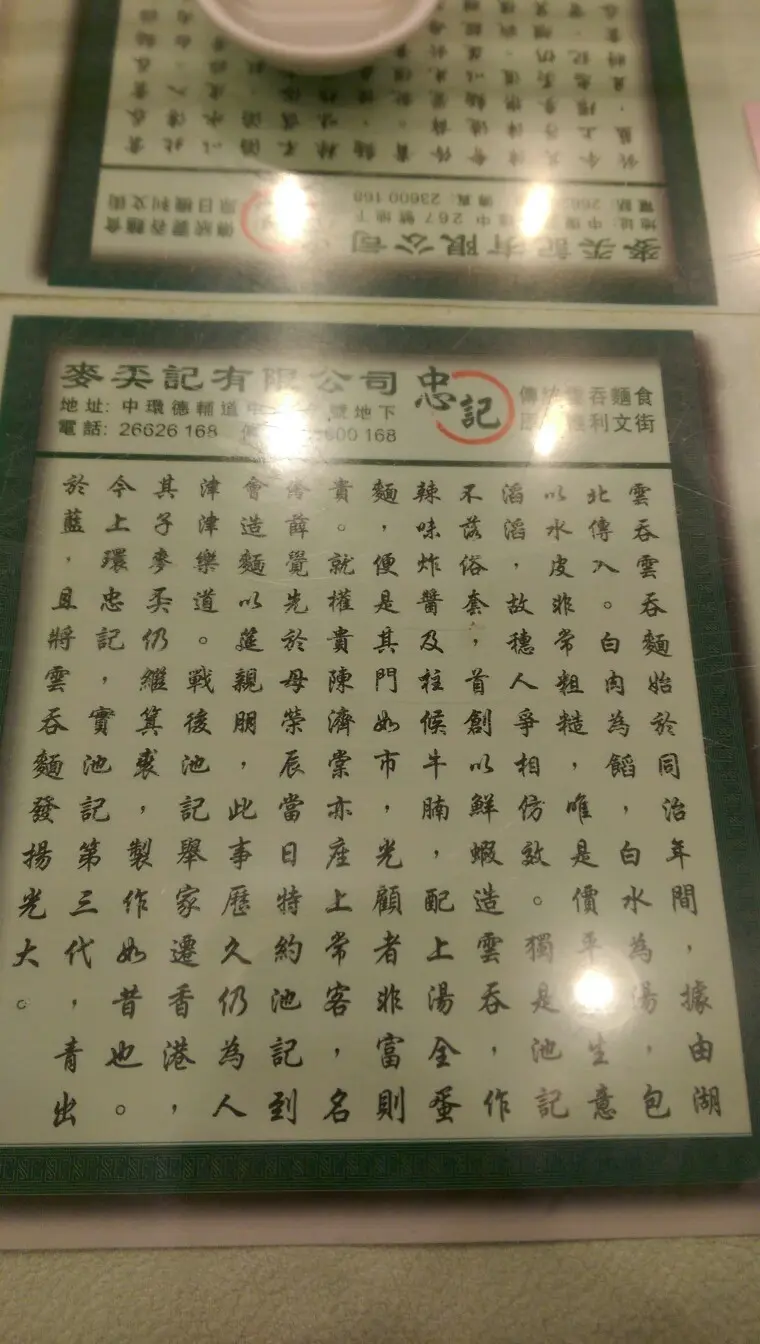 麥奀記有限公司
地址: 中環 中 267 號地下
電話: 266 傳真: 23600 168
傳統雲吞麵食
原日機利文街
麥奀記有限公司
地址: 中環德輔道中 號地下
電話: 26626 168 600 168
忠記
傳 吞麵食
利文街
雲吞雲吞麵始於同治年間，據由湖
北傳入。白肉為餡，白水為湯，包
以水皮非常粗糙，唯是價平 生意
滔滔，故穗人爭相仿效。獨是池記
不落俗套，首創以鮮蝦造雲吞，作
辣味炸醬及柱候牛腩，配上湯全蛋
麵，便是其門如市，光顧者非富則
貴。就權貴陳濟棠亦座上常客，名
伶薛覺先於母榮辰當日特約池記到
會造麵以莚親朋，此事歷久仍為人
津津樂道。戰後池記舉家遷香港，
其子麥奀仍繼箕裘，製作如昔也。
今上環忠記，實池記第三代，青出
於藍，且將雲吞麵發揚光大。